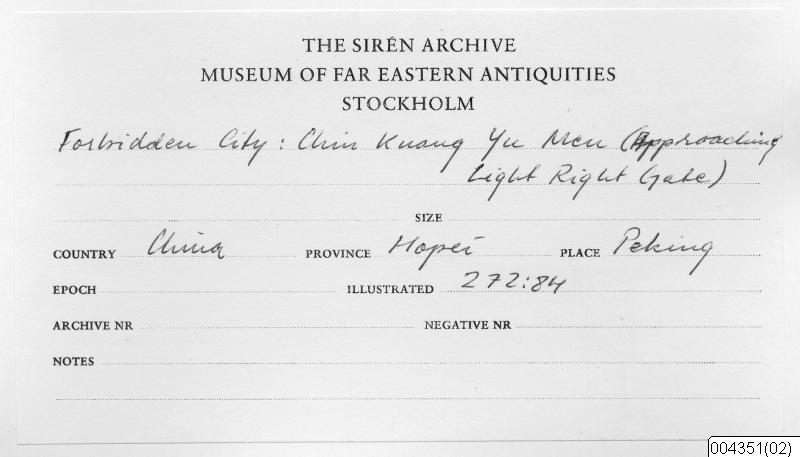 THE SIRÉN ARCHIVE
MUSEUM OF FAR EASTERN ANTIQUITIES
STOCKHOLM
Forbidden City: Chin Kuang Yu Men (Approaching
Light Right Gate)
SIZE
COUNTRY China PROVINCE Hopei PLACE Peking
EPOCH ILLUSTRATED 272:84
ARCHIVE NR NEGATIVE NR
NOTES
004351(02)